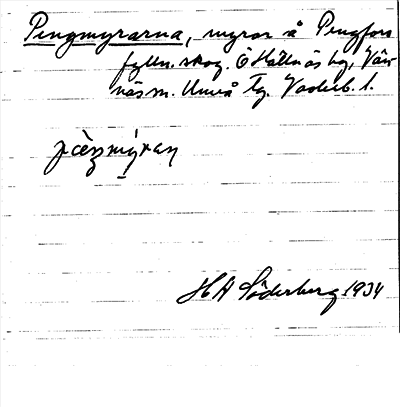 Pengmyrarna, myrar å Pengfors
fylln. skog. Ö Hällnäs by, Vän-
näs sn. Umeå tg. Västerb. l.
pängmýran
HA Söderberg 1934